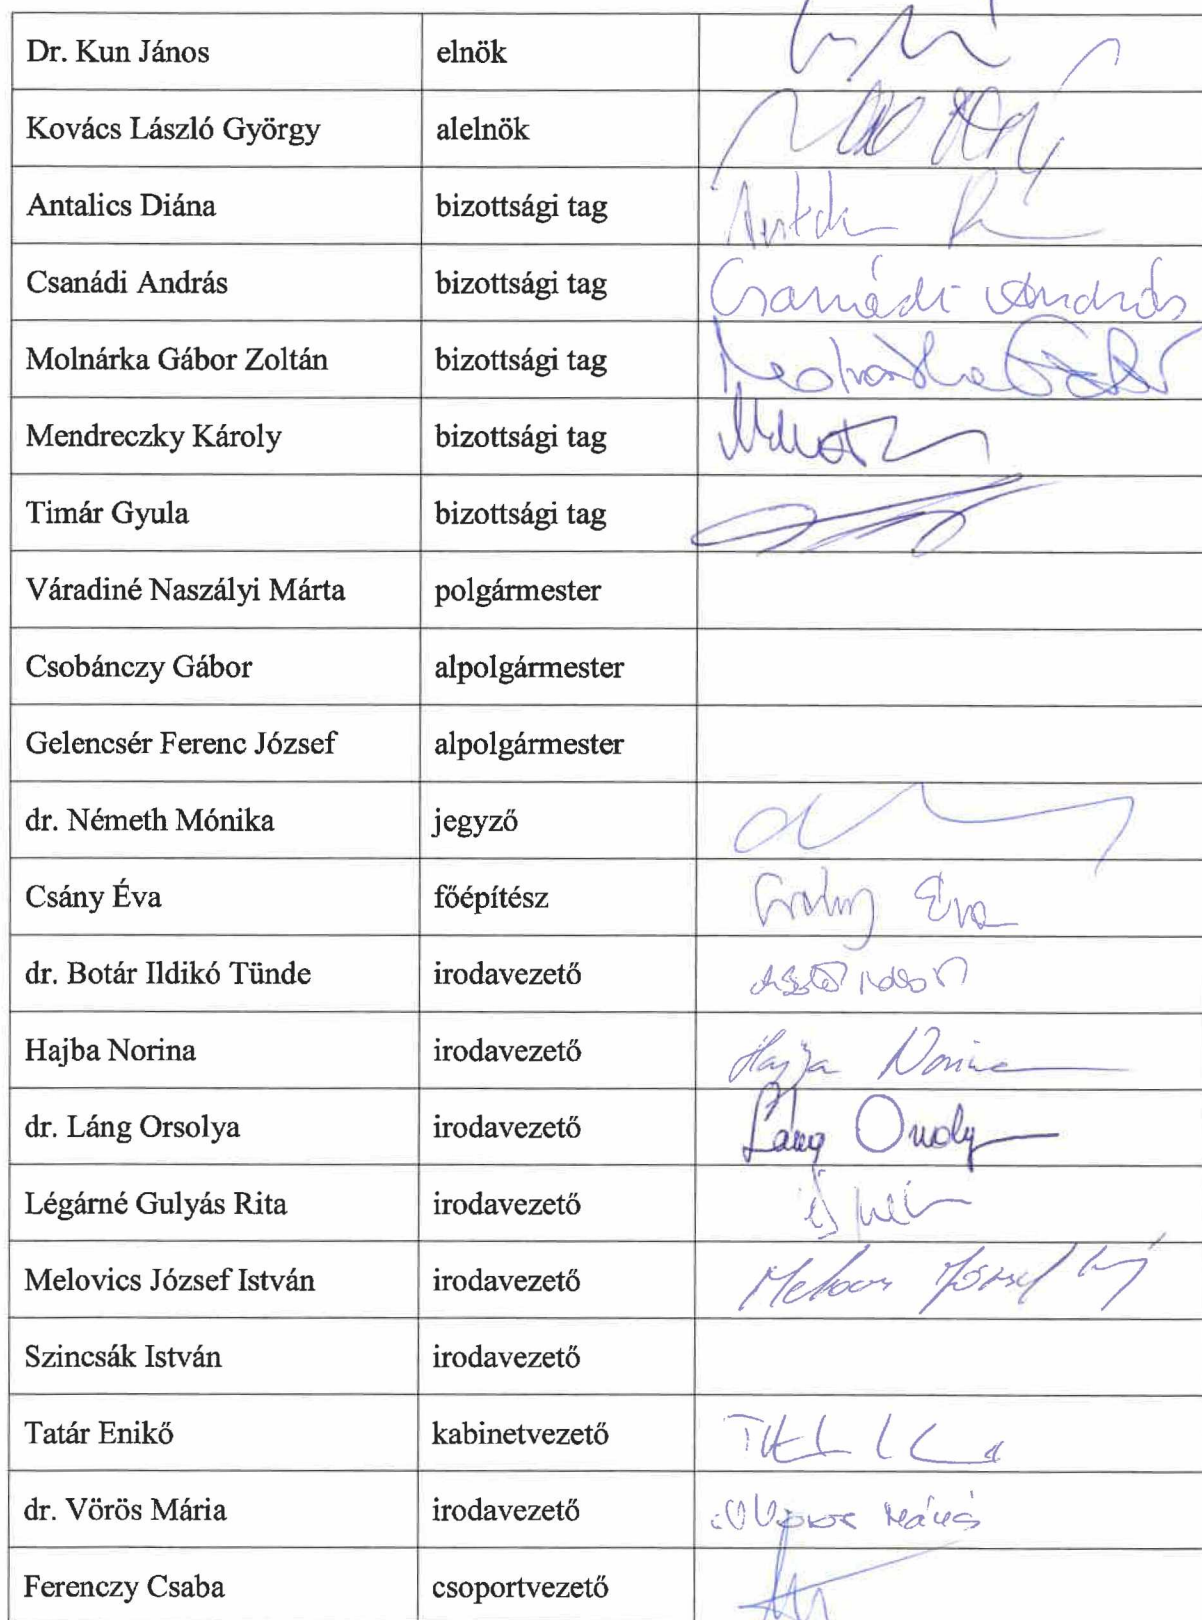 Dr. Kun János elnök
Kovács László György alelnök
Antalics Diána bizottsági tag
Csanádi András bizottsági tag Csanádi András
Molnárka Gábor Zoltán bizottsági tag
Mendreczky Károly bizottsági tag
Timár Gyula bizottsági tag
Váradiné Naszályi Márta polgármester
Csobánczy Gábor alpolgármester
Gelencsér Ferenc József alpolgármester
dr. Németh Mónika jegyző
Csány Éva főépítész Éva
dr. Botár Ildikó Tünde irodavezető
Hajba Norina irodavezető Hajba Norina
dr. Láng Orsolya irodavezető Láng Orsolya
Légárné Gulyás Rita irodavezető
Melovics József István irodavezető Melovics József
Szincsák István irodavezető
Tatár Enikő kabinetvezető
dr. Vörös Mária irodavezető Vörös Mária
Ferenczy Csaba csoportvezető